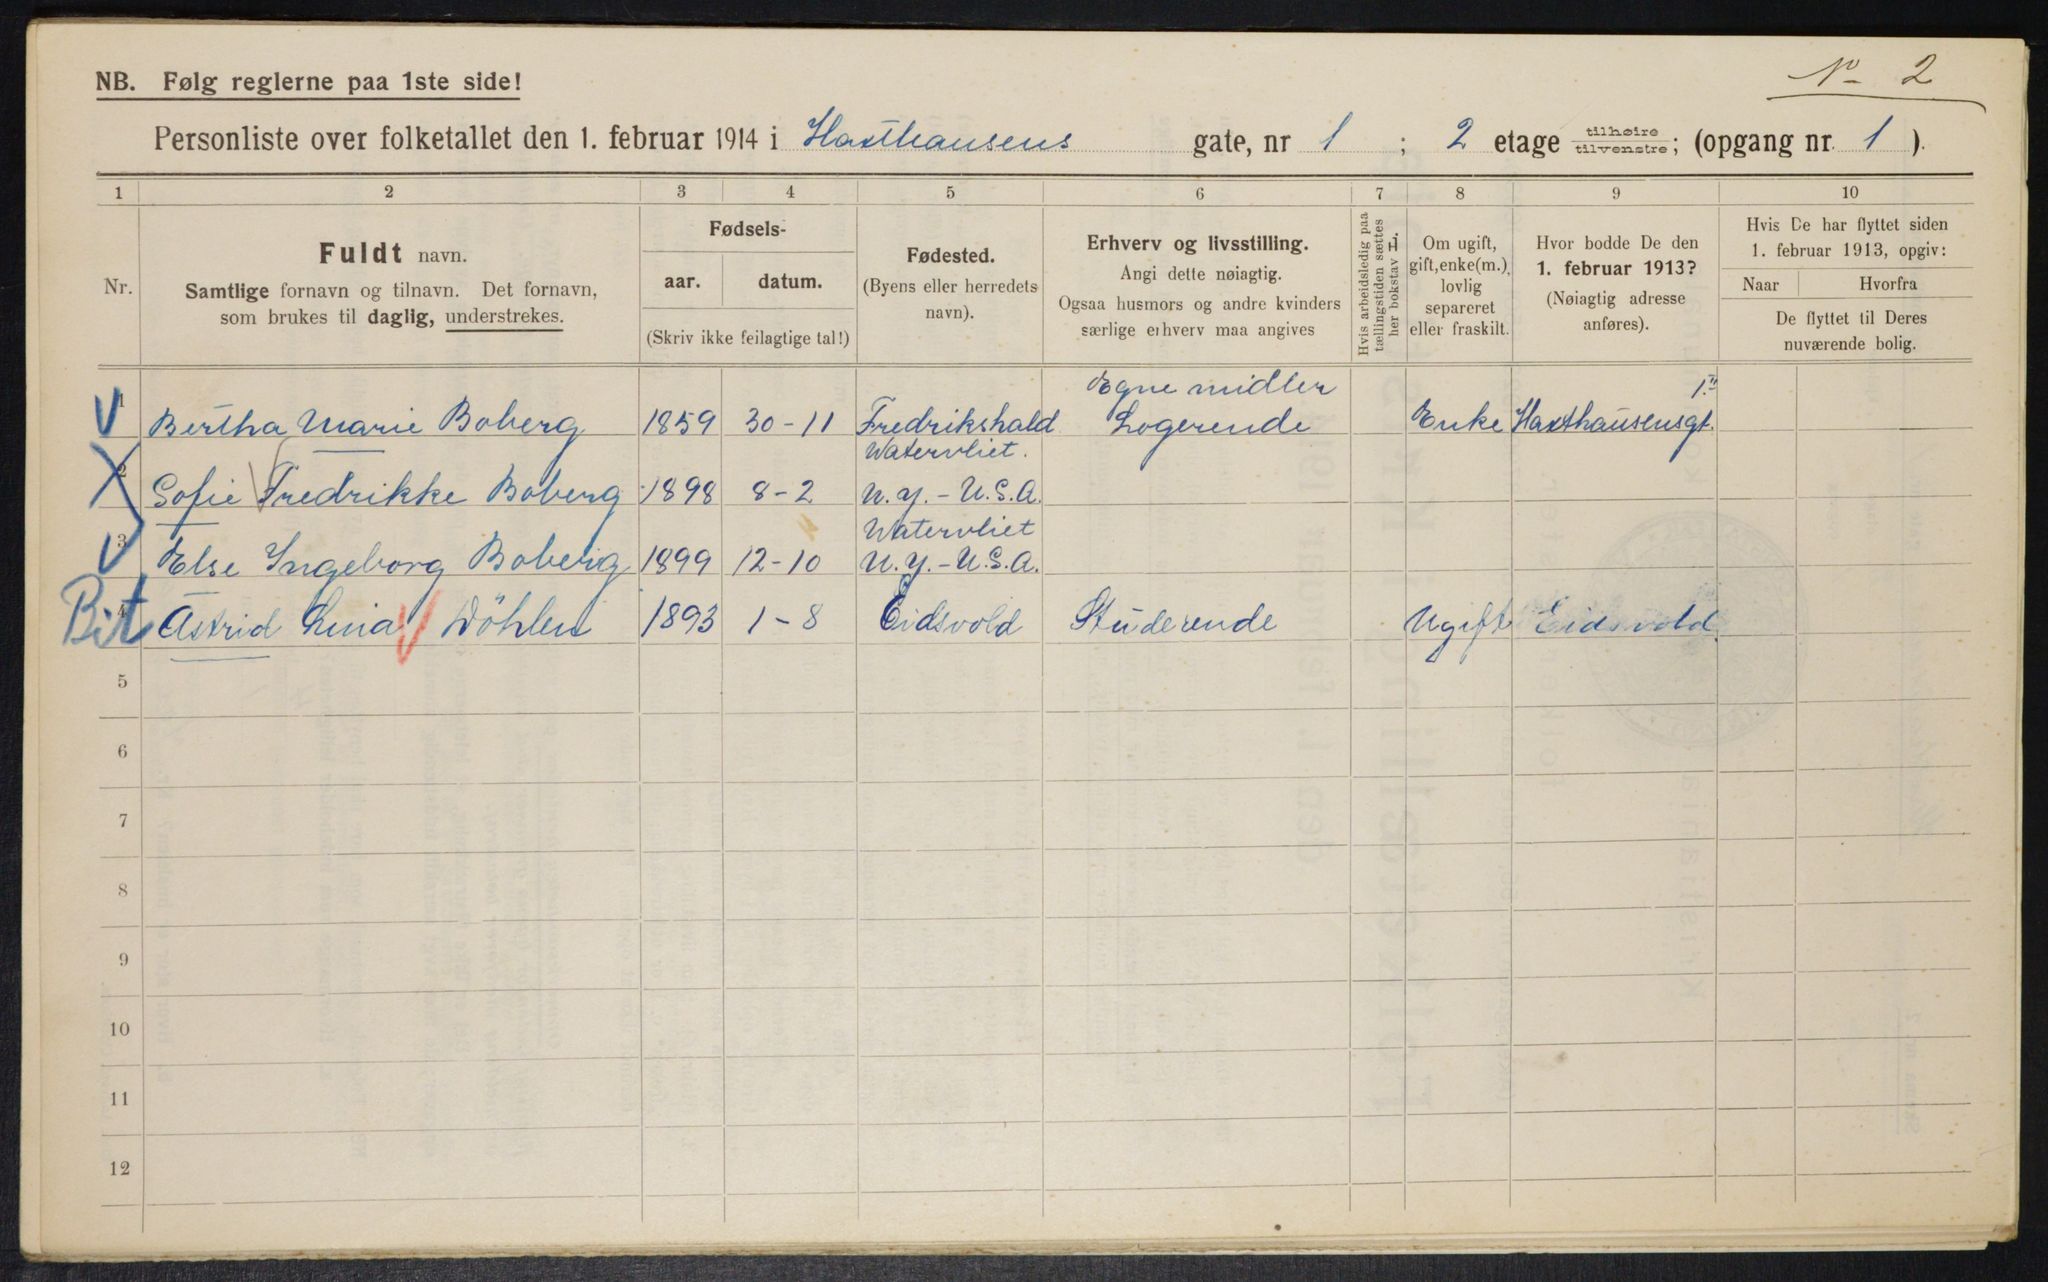 Nº 2
NB. Følg reglerne paa 1ste side!
Personliste over folketallet den 1. februar 1914 i Haxthausens gate, nr 1 ; 2 etage tilhøire tilvenstre ; (opgang nr. 1 ).
1 2 3 4 5 6 7 8 9 10
Nr.
Fuldt navn.
Samtlige fornavn og tilnavn. Det fornavn,
som brukes til daglig, understrekes.
Fødsels-
aar. datum.
(Skriv ikke feilagtige tal!)
Fødested.
(Byens eller herredets
navn).
Erhverv og livsstilling.
Angi dette nøiagtig.
Ogsaa husmors og andre kvinders
særlige erhverv maa angives
Hvis arbeidsledig paa
tællingstiden sættes
her bokstav L.
Om ugift,
gift, enke(m.),
lovlig
separeret
eller fraskilt.
Hvor bodde De den
1. februar 1913?
(Nøiagtig adresse
anføres).
Hvis De har flyttet siden
1. februar 1913, opgiv:
Naar Hvorfra
De flyttet til Deres
nuværende bolig.
Egne midler 1.II
1 Bertha Marie Boberg 1859 30-11 Fredrikshald Logerende Enke Haxthausensgt.
Watervliet.
2 Sofie Fredrikke Boberg 1898 8-2 N.Y.-U.S.A.
Watervliet
3 Else Ingeborg Boberg 1899 12-10 N.Y.-U.S.A.
Bit 4 Astrid Lina Döhlen 1893 1-8 Eidsvold Studerende Ugift Eidsvold.
5
6
7
8
9
10
11
12